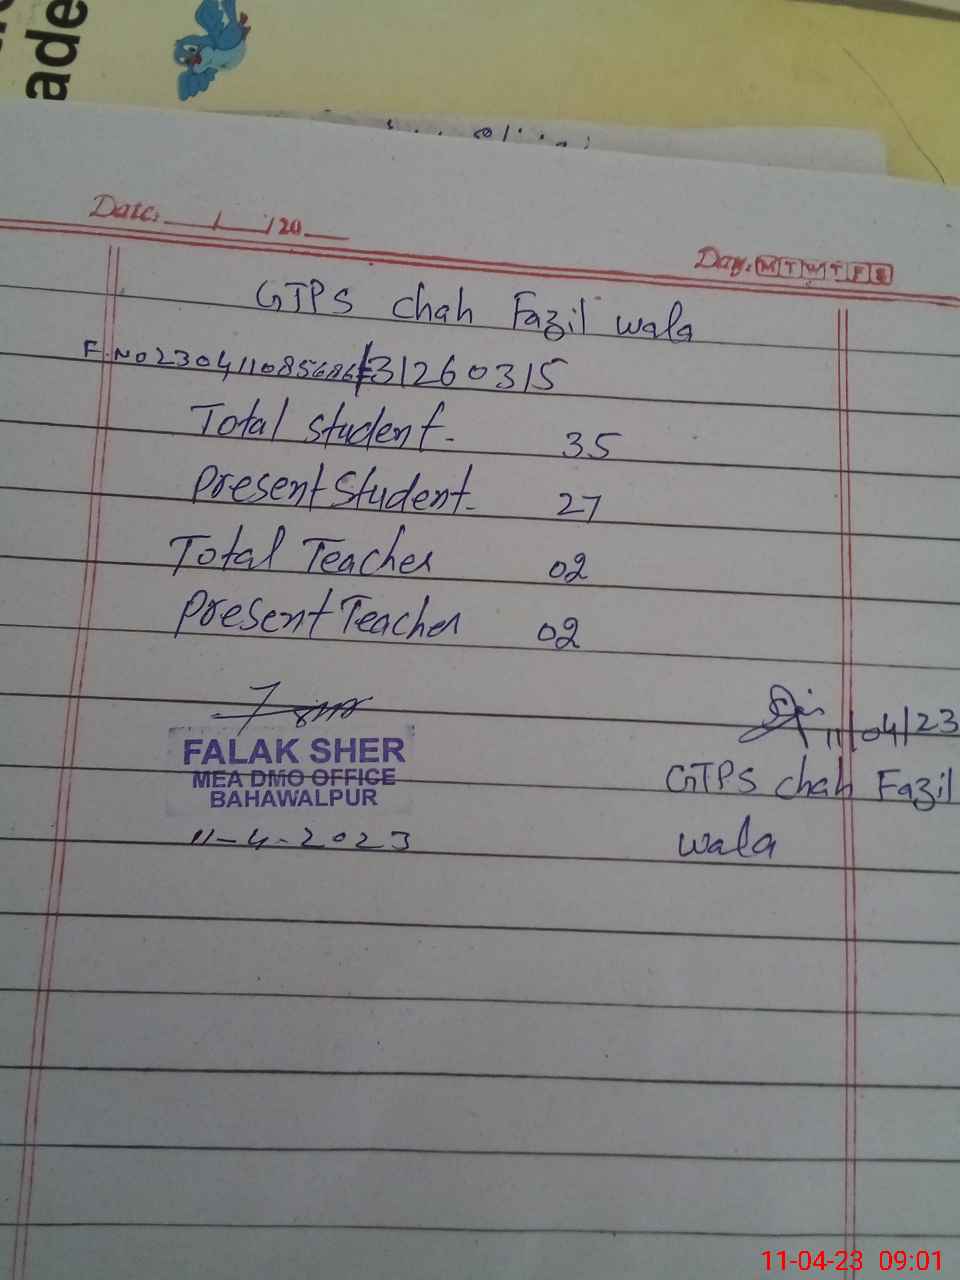 ade
Date: / /20
Day: M T W T F S
GTPS chah Fazil wala
F.No 230411085686 31260315
Total student- 35
Present Student- 27
Total Teacher 02
Present Teacher 02
11/04/23
FALAK SHER
MEA DMO OFFICE
BAHAWALPUR
11-4-2023
GTPS chah Fazil
wala
11-04-23 09:01